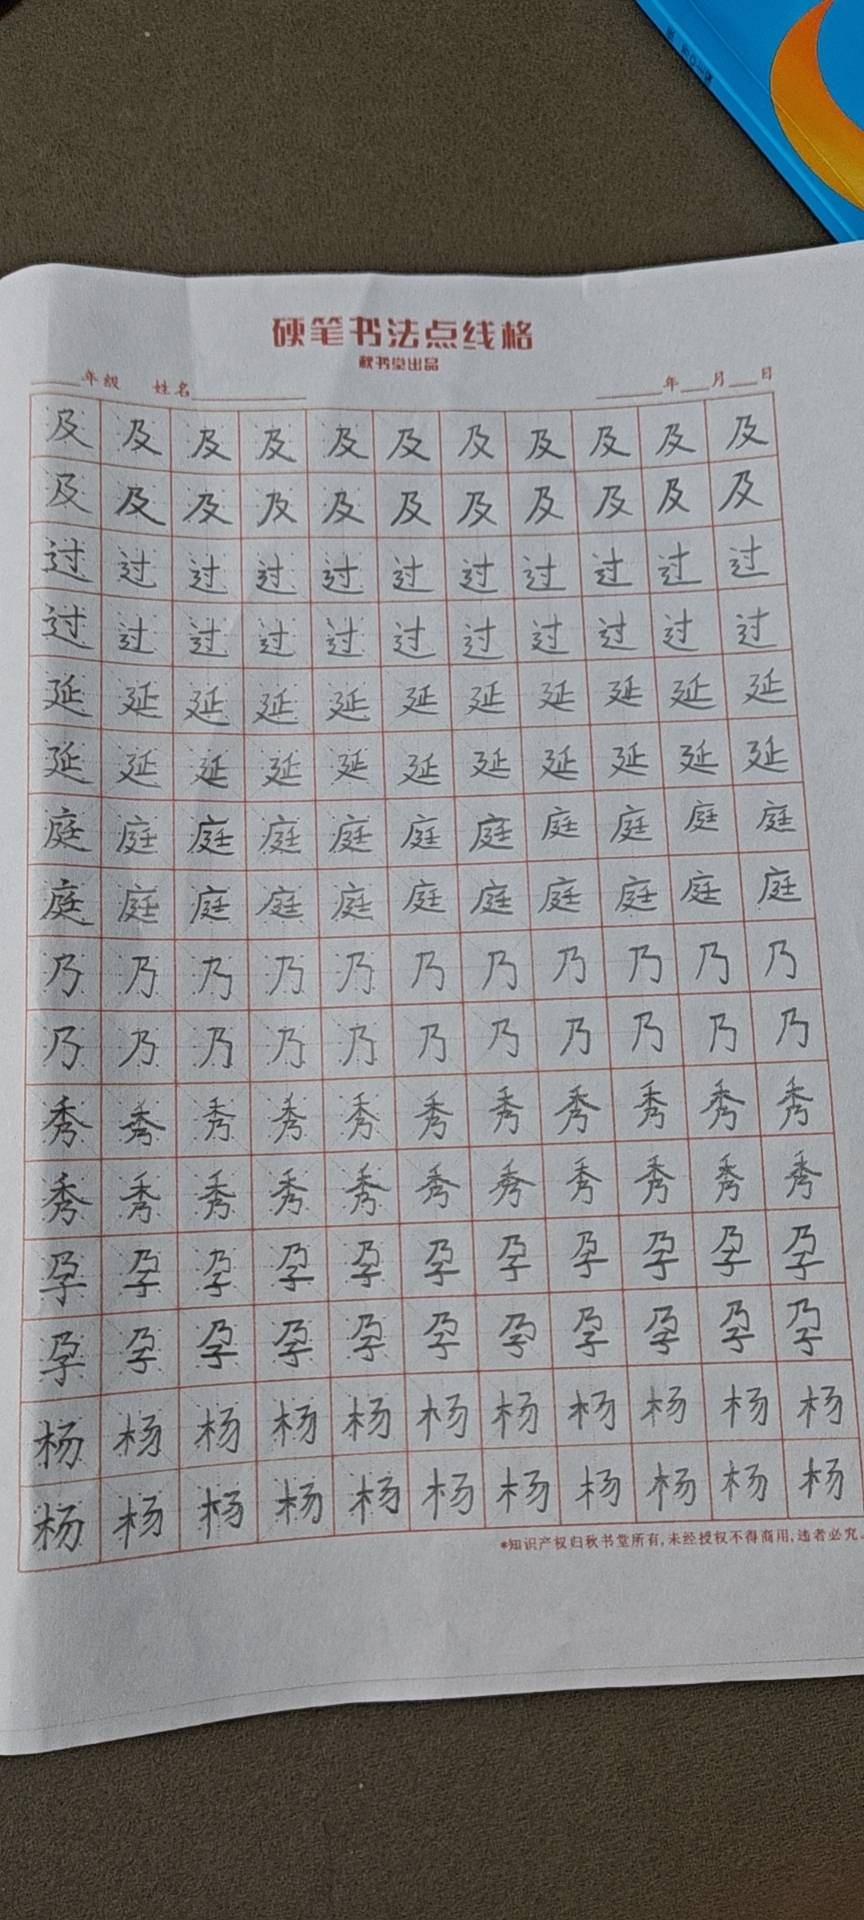 硬笔书法点线格
秋书堂出品
年级 姓名 年 月 日
及及及及及及及及及及及
及及及及及及及及及及及
过过过过过过过过过过过
过过过过过过过过过过过
延延延延延延延延延延延
延延延延延延延延延延延
庭庭庭庭庭庭庭庭庭庭庭
庭庭庭庭庭庭庭庭庭庭庭
乃乃乃乃乃乃乃乃乃乃乃
乃乃乃乃乃乃乃乃乃乃乃
秀秀秀秀秀秀秀秀秀秀秀
秀秀秀秀秀秀秀秀秀秀秀
孕孕孕孕孕孕孕孕孕孕孕
孕孕孕孕孕孕孕孕孕孕孕
杨杨杨杨杨杨杨杨杨杨杨
杨杨杨杨杨杨杨杨杨杨杨
*知识产权归秋书堂所有,未经授权不得商用,违者必究。